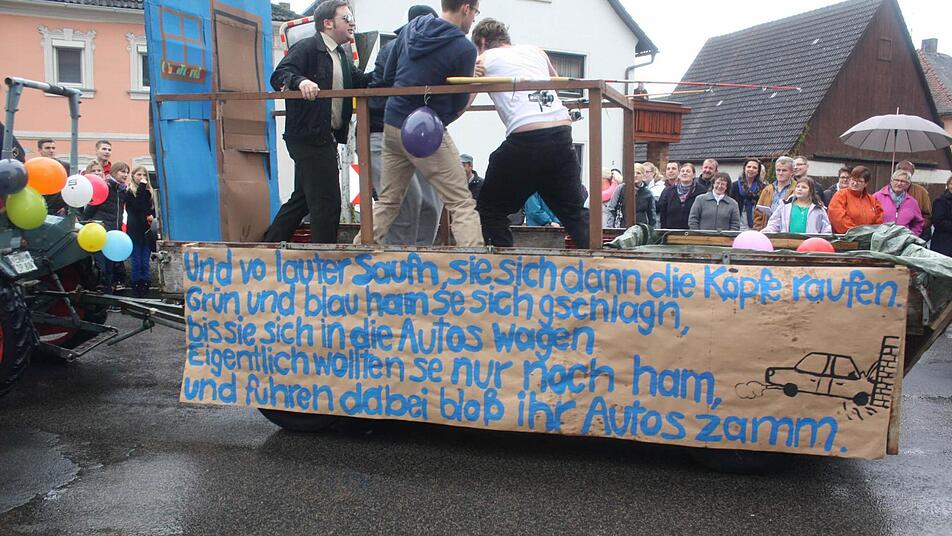 Und vo lauter Saufn, sie sich dann die Köpfe raufen.
Grün und blau ham se sich gschlagn,
bis sie sich in die Autos wagen
Eigentlich wollten se nur noch ham,
und fuhren dabei bloß ihr Autos zamm.